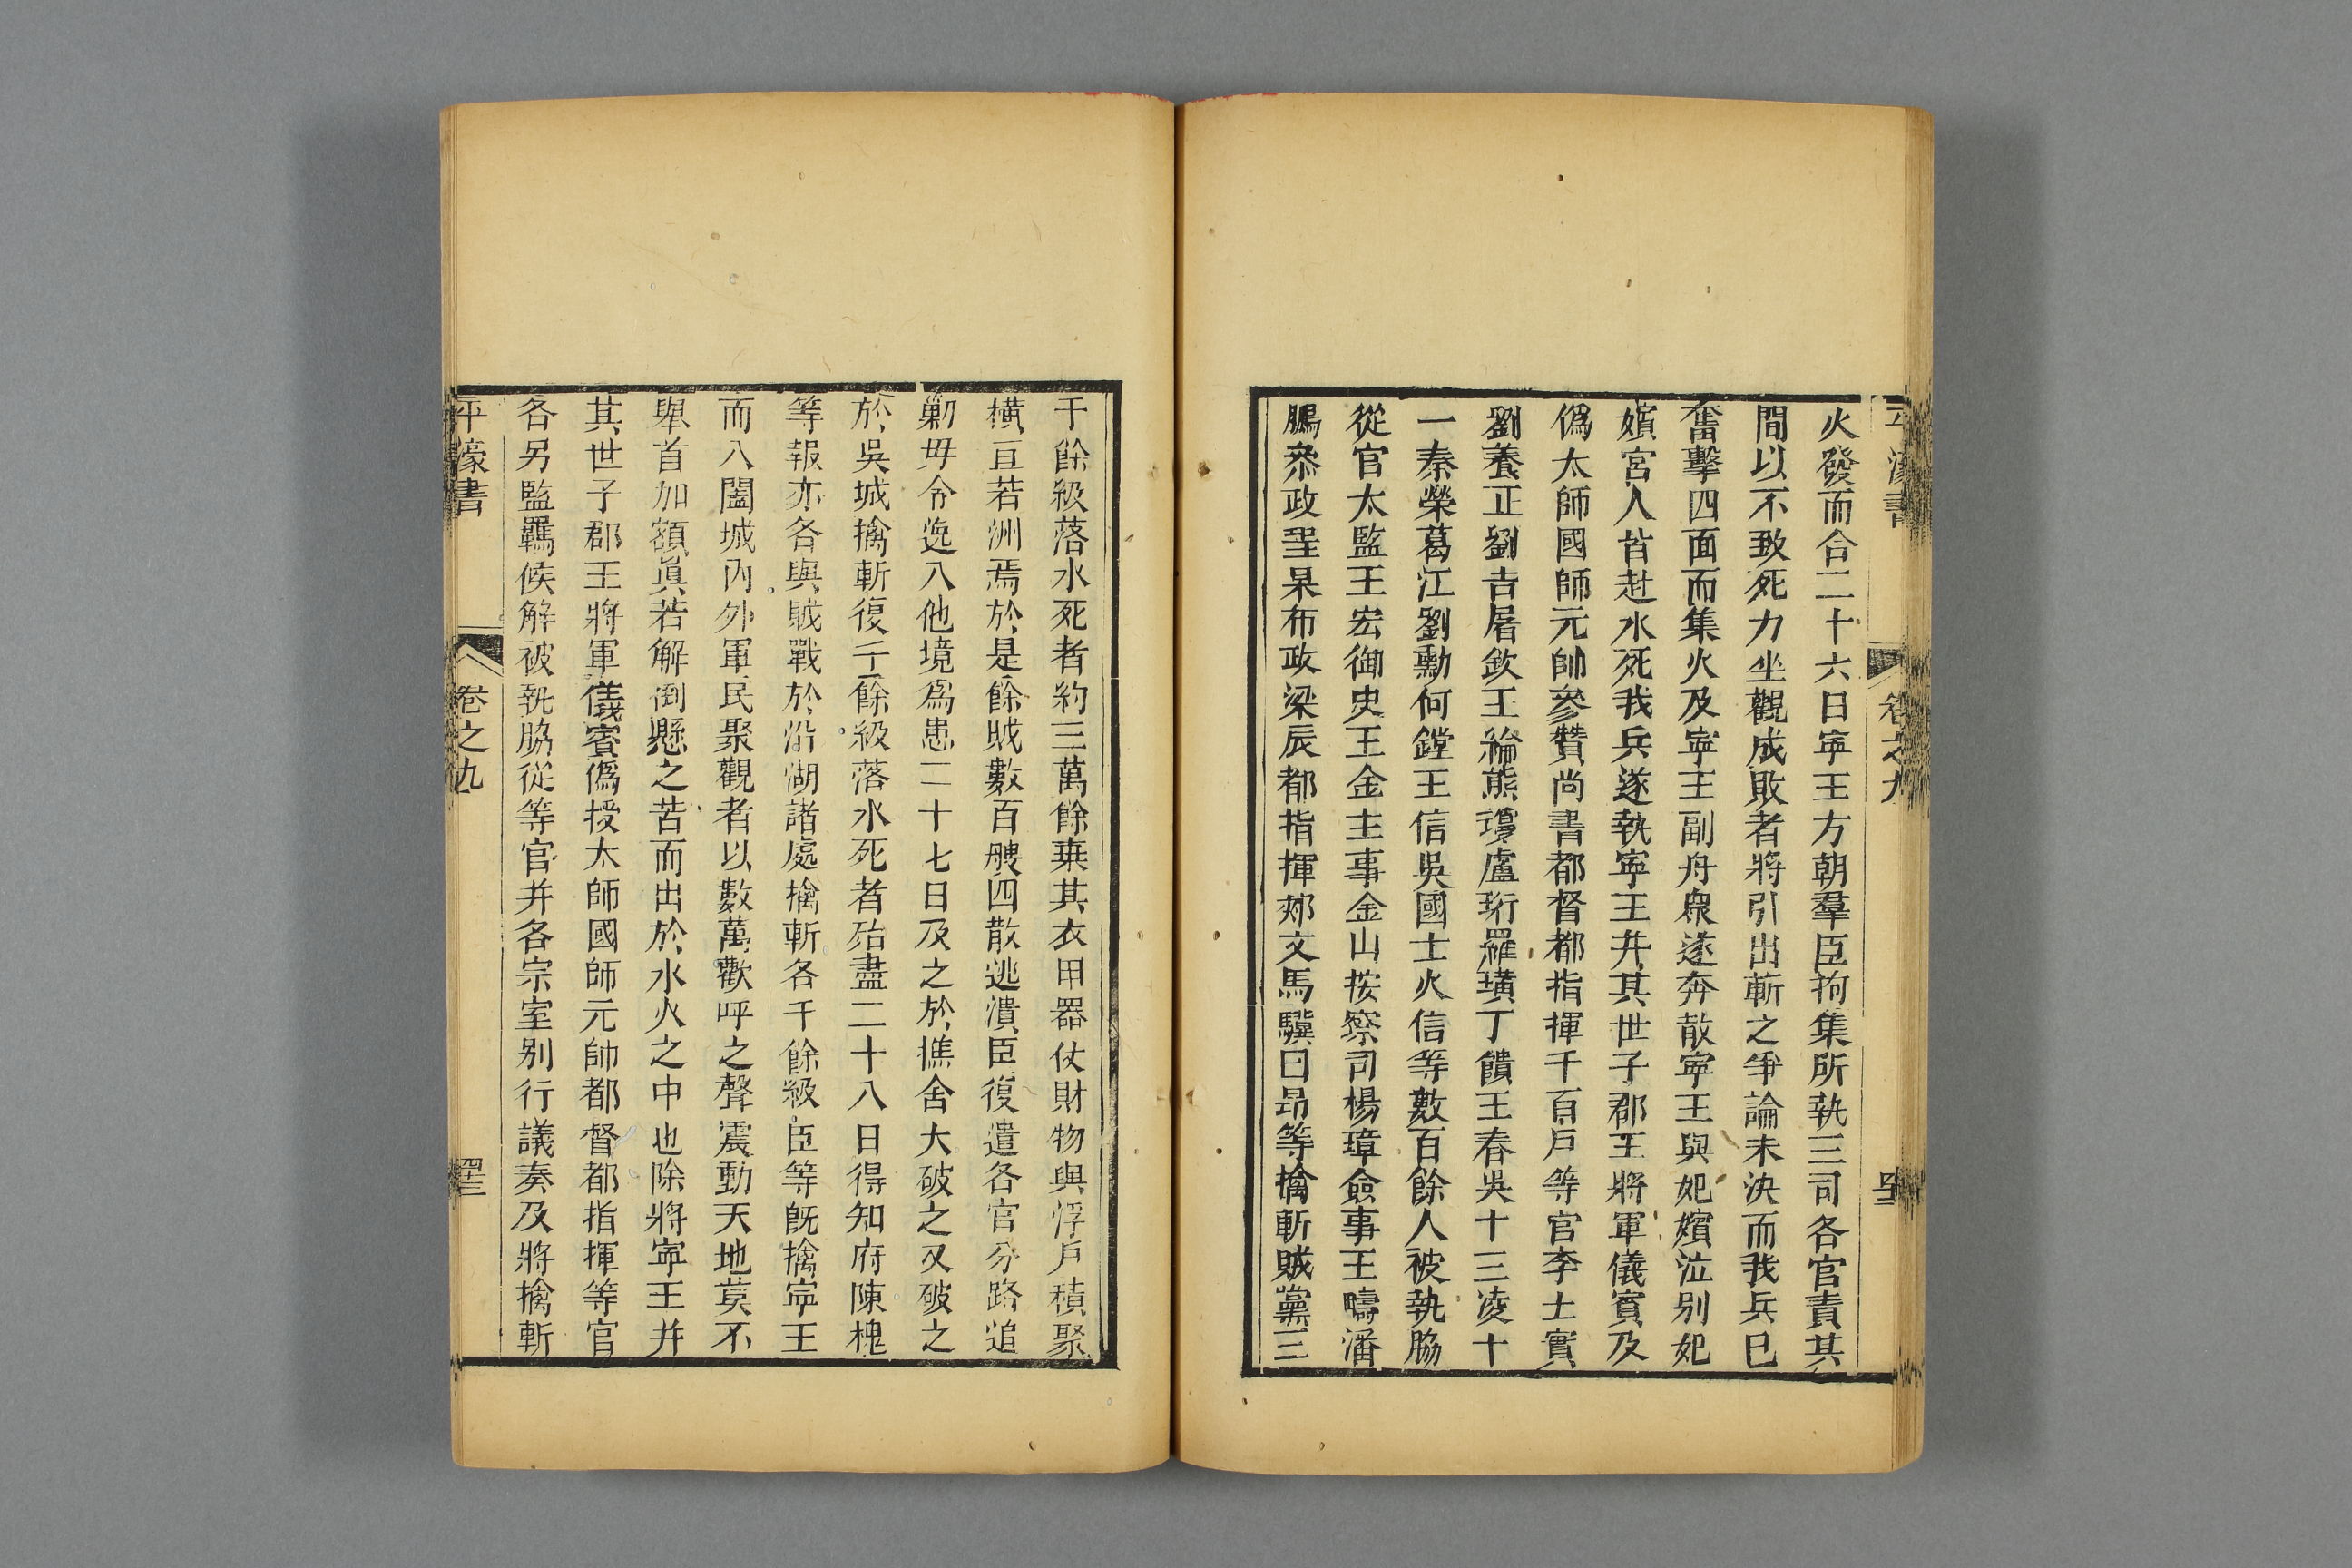 平濠書
卷之九
火發而合二十六日寜王方朝羣臣拘集所執三司各官責其
間以不致死力坐觀成敗者將引出斬之爭論未決而我兵巳
奮擊四面而集火及寜王副舟衆遂奔散寜王與妃嬪泣別妃
嬪宮人皆赴水死我兵遂執寜王并其世子郡王將軍儀賓及
偽太師國師元帥參贊尚書都督都指揮千百戶等官李士實
劉養正劉吉屠欽王綸熊瓊盧珩羅璜丁饋王春吳十三凌十
一秦榮葛江劉勳何鏜王信吳國士火信等數百餘人被執脇
從官太監王宏御史王金主事金山按察司楊璋僉事王疇潘
鵬叅政程杲布政梁辰都指揮郟文馬驥白昻等擒斬賊黨三
千餘級落水死者約三萬餘棄其衣甲器仗財物與浮尸積聚
橫亘若洲焉於是餘賊數百艘四散逃潰臣復遣各官分路追
剿毋令逸入他境爲患二十七日及之於樵舍大破之又破之
於吳城擒斬復千餘級落水死者殆盡二十八日得知府陳槐
等報亦各與賊戰於沿湖諸處擒斬各千餘級臣等旣擒寜王
而入闔城內外軍民聚觀者以數萬歡呼之聲震動天地莫不
舉首加額眞若解倒懸之苦而出於水火之中也除將寜王并
其世子郡王將軍儀賓偽授太師國師元帥都督都指揮等官
各另監羈候解被執脇從等官并各宗室別行議奏及將擒斬
平濠書
卷之九